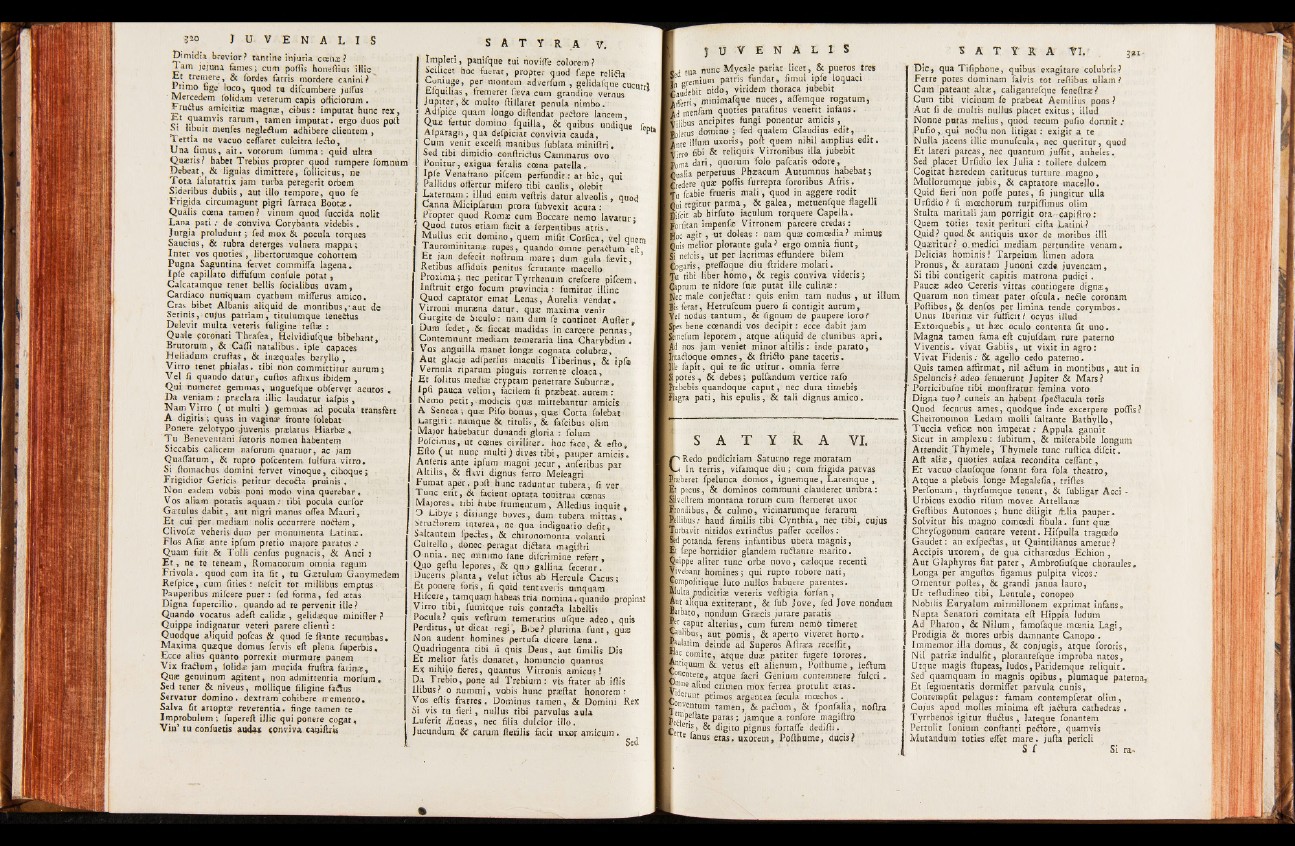 320 JUVENALIS
Dimidia brevior? tantine injuria cœnæ?
Tam jejuna fames; cum possis honestius illic
Et tremere, & sordes farris mordere canini?
Primo fige loco, quod tu discumbere jussus
Mercedem solidam veterum capis officiorum.
Fructus amicitiæ magnæ, cibus: imputat hunc rex,
Et quamvis rarum, tamen imputat. ergo duos post
Si libuit menses neglectum adhibere clientem,
Tertia ne vacuo cessaret culcitra lecto,
Una simus, ait. votorum summa: quid ultra
Quæris? habet Trebius propter quod rumpere somnum
Debeat, & ligulas dimittere, sollicitus, ne
Tota salutatrix jam turba peregerit orbem
Sideribus dubiis, aut illo tempore, quo se
Frigida circumagunt pigri sarraca Bootæ.
Qualis cœna tamen? vinum quod succida nolit
Lana pati: de conviva Corybanta videbis.
Jurgia proludunt; sed mox & pocula torques
Saucius, & rubra deterges vulnera mappa;
Inter vos quoties, libertorumque cohortem
Pugna Saguntina fervet commissa lagena.
Ipse capillato diffusum consule potat,
Calcatamque tenet bellis socialibus uvam,
Cardiaco nunquam cyathum missurus amico.
Cras bibet Albanis aliquid de montibus, aut de
Setinis, cujus patriam, titulumque senectus
Delevit multa veteris fuligine testæ:
Quale coronati Thrasea, Helvidiusque bibebant,
Brutorum, & Cassi natalibus. ipse capaces
Heliadum crustas, & inæquales beryllo,
Virro tenet phialas. tibi non committitur aurum;
Vel si quando datur, custos affixus ibidem,
Qui numeret gemmas, unguesque observet acutos.
Da veniam: præclara illic laudatur iaspis,
Nam Virro (ut multi) gemmas ad pocula transfert
A digitis; quas in vaginæ fronte solebat
Ponere zelotypo juvenis prælatus Hiarbæ.
Tu Beneventani sutoris nomen habentem
Siccabis calicem nasorum quatuor, ac jam
Quassatum, & rupto poscentem sulfura vitro.
Si stomachus domini fervet vinoque, ciboque;
Frigidior Geticis petitur decocta pruinis.
Non eadem vobis poni modo vina querebar.
Vos aliam potatis aquam: tibi pocula cursor
Gætulus dabit, aut nigri manus ossea Mauri,
Et cui per mediam nolis occurrere noctem,
Clivosæ veheris dum per monumenta Latinæ.
Flos Asiæ ante ipsum pretio majore paratus:
Quam fuit & Tulli census pugnacis, & Anci:
Et, ne te teneam, Romanorum omnia regum
Frivola. quod cum ita sit, tu Gætulum Ganymedem
Respice, cum sities: nescit tot millibus emptus
Pauperibus miscere puer: sed forma, sed ætas
Digna supercilio. quando ad te pervenit ille?
Quando vocatus adest calidæ, gelidæque minister?
Quippe indignatur veteri parere clienti:
Quodque aliquid poscas & quod se stante recumbas.
Maxima quæque domus servis est plena superbis.
Ecce alius quanto porrexit murmure panem
Vix fractum, solidæ jam mucida frustra farinæ,
Quæ genuinum agitent, non admittentia morsum.
Sed tener & niveus, mollique siligine factus
Servatur domino. dextram cohibere memento.
Salva sit artoptæ reverentia. finge tamen te
Improbulum; superest illic qui ponere cogat,
Vin' tu consuetis audax conviva canistris
SATYRA V.
Impleri, panisque tui novisse colorem?
Scilicet hoc fuerat, propter quod sæpe relicta
Coniuge, per montem adversum, gelidasque cucurri
Esquilias, fremeret sæva cum grandine vernus
Jupiter, & multo stillaret penula nimbo.
Aspice quam longo distendat pectore lancem,
Quæ fertur domino squilla, & quibus undique septa
Asparagis, qua despiciat convivia cauda,
Cum venit excelsi manibus sublata ministri.
Sed tibi dimidio constrictus Cammarus ovo
Ponitur, exigua feralis cœna patella.
Ipse Venafrano piscem perfundit: at hic, qui
Pallidus offertur misero tibi caulis, olebit
Laternam: illud enim vestris datur alveolis, quod
Canna Micipsarum prora subvexit acuta:
Propter quod Romæ cum Boccare nemo lavatur;
Quod tutos etiam facit a serpentibus atris.
Mullus erit domino, quem misit Corsica, vel quem
Taurominitanæ rupes, quando omne peractum est,
Et jam defecit nostrum mare; dum gula sævit,
Retibus assiduis penitus scrutante macello
Proxima; nec petitur Tyrrhenum crescere piscem.
Instruit ergo focum provincia: sumitur illinc
Quod captator emat Lenas, Aurelia vendat.
Virroni muræna datur, quæ maxima venit
Gurgite de Siculo: nam dum se continet Auster,
Dum sedet, & siccat madidas in carcere pennas,
Contemnunt mediam temeraria lina Charybdim.
Vos anguilla manet longæ cognata colubræ,
Aut glacie adspersus maculis Tiberinus, & ipse
Vernula riparum pinguis torrente cloaca,
Et solitus mediæ cryptam penetrare Suburræ.
Ipsi pauca velim, facilem si præbeat aurem:
Nemo petit, modicis quæ mittebantur amicis
A Seneca; quæ Piso bonus, quæ Cotta solebat
Largiri: namque & titulis, & fascibus olim
Major habebatur donandi gloria: solum
Poscimus, ut cœnes civiliter. hoc face, & esto,
Esto (ut nunc multi) dives tibi, pauper amicis.
Anseris ante ipsum magni jecur, anseribus par
Altilis, & flavi dignus ferro Meleagri
Fumat aper. post hunc raduntur tubera, si ver
Tunc erit, & facient optata tonitrua cœnas
Majores. tibi habe frumentum, Alledius inquit,
O Libye; disiunge boves, dum tubera mittas.
Structorem interea, ne qua indignatio desit,
Saltantem spectes, & chironomonta volanti
Cultello, donec peragat dictata magistri
Omnia. nec minimo sane discrimine refert,
Quo gestu lepores, & quo gallina secetur.
Duceris planta, velut ictus ab Hercule Cacus;
Et ponere foris, si quid tentaveris unquam
Hiscere, tamquam habeas tria nomina. quando propinat
Virro tibi, sumitque tuis contacta labellis
Pocula? quis vestrum temerarius usque adeo, quis
Perditus, ut dicat regi, Bibe? plurima sunt, quæ
Non audent homines pertusa dicere læna.
Quadringenta tibi si quis Deus, aut similis Dis
Et melior fatis donaret, homuncio quantus
Ex nihilo fieres, quantus Virronis amicus!
Da Trebio, pone ad Trebium: vis frater ab istis
Ilibus? o nummi, vobis hunc præstat honorem:
Vos estis fratres. Dominus tamen, & Domini Rex
Si vis tu fieri, nullus tibi parvulus aula
Luserit Æneas, nec filia dulcior illo.
Jucundum & carum sterilis facit uxor amicum.
Sed
JUVENALIS
Sed tua nunc Mycale pariat licet, & pueros tres
In gremium patris fundat, simul ipse loquaci
Gaudebit nido, viridem thoraca jubebit
Afferri, minimasque nuces, assemque rogatum,
Ad mensam quoties parasitus venerit infans.
Vilibus ancipites fungi ponentur amicis,
Boletus domino; sed qualem Claudius edit,
Ante illum uxoris, post quem nihil amplius edit.
Virro sibi & reliquis Virronibus illa jubebit
Poma dari, quorum solo pascaris odore,
Qualia perpetuus Phæacum Autumnus habebat;
Credere quæ possis surrepta sororibus Afris.
Tu scabie frueris mali, quod in aggere rodit
Qui tegitur parma, & galea, metuensque flagelli
Discit ab hirsuto iaculum torquere Capella.
Forsitan impensæ Virronem parcere credas:
Hoc agit, ut doleas: nam quæ comœdia? mimus
Quis melior plorante gula? ergo omnia fiunt,
Si nescis, ut per lacrimas effundere bilem
Cogaris, pressoque diu stridere molari.
Tu tibi liber homo, & regis conviva videris;
Captum te nidore suæ putat ille culinæ:
Nec male conjectat: quis enim tam nudus, ut illum
Bis ferat, Hetruscum puero si contigit aurum,
Vel nodus tantum, & signum de paupere loro?
Spes bene cœnandi vos decipit: ecce dabit jam
Semesum leporem, atque aliquid de clunibus apri.
Ad nos jam veniet minor altilis: inde parato,
Intactoque omnes, & stricto pane tacetis.
Ille sapit, qui te sic utitur. omnia ferre
Si potes, & debes; pulsandum vertice raso
Præbebis quandoque caput, nec dura timebis
Flagra pati, his epulis, & tali dignus amico.
SATYRA VI.
CRedo pudicitiam Saturno rege moratam
In terris, visamque diu; cum frigida parvas
Præberet spelunca domos, ignemque, Laremque,
Et pecus, & dominos communi clauderet umbra:
Silvestrem montana torum cum sterneret uxor
Frondibus, & culmo, vicinarumque ferarum
Pellibus: haud similis tibi Cynthia, nec tibi, cujus
Turbavit nitidos extinctus passer ocellos:
Sed potanda ferens infantibus ubera magnis,
Et sæpe horridior glandem ructante marito.
Quippe aliter tunc orbe novo, cæloque recenti
Vivebant homines; qui rupto robore nati,
Compositique luto nullos habuere parentes.
Multa pudicitiæ veteris vestigia forsan,
Aut aliqua extiterant, & sub Jove, sed Jove nondum
Barbato, nondum Græcis jurare paratis
Per caput alterius, cum furem nemo timeret
Caulibus, aut pomis, & aperto viveret horto.
Paulatim deinde ad Superos Astræa recessit,
Hac comite, atque duæ pariter fugere sorores.
Antiquum & vetus est alienum, Posthume, lectum
Concutere, atque sacri Genium contemnere fulcri.
Omne aliud crimen mox ferrea protulit ætas.
Viderunt primos argentea secula mœchos.
Conventum tamen, & pactum, & sponsalia, nostra
Tempestate paras; jamque a tonsore magistro
Pecteris, & digito pignus fortasse dedisti.
Certe sanus eras. uxorem, Posthume, ducis?
SATYRA VI. 321
Dic, qua Tisiphone, quibus exagitare colubris?
Ferre potes dominam salvis tot restibus ullam?
Cum pateant altæ, caligantesque fenestræ?
Cum tibi vicinum se præbeat Aemilius pons?
Aut si de multis nullus placet exitus; illud
Nonne putas melius, quod tecum pusio dormit:
Pusio, qui noctu non litigat: exigit a te
Nulla jacens illic munuscula, nec queritur, quod
Et lateri parcas, nec quantum jussit, anheles.
Sed placet Ursidio lex Julia: tollere dulcem
Cogitat hæredem cariturus turture magno,
Mullorumque jubis, & captatore macello.
Quid fieri non posse putes, si jungitur ulla
Ursidio? si mœchorum turpissimus olim
Stulta maritali jam porrigit ora capistro:
Quem toties texit perituri cista Latini?
Quid? quod & antiquis uxor de moribus illi
Quæritur? o medici mediam pertundite venam.
Delicias hominis! Tarpeium limen adora
Pronus, & auratam Junoni cæde juvencam,
Si tibi contigerit capitis matrona pudici.
Paucæ adeo Cereris vittas contingere dignæ,
Quarum non timeat pater oscula. necte coronam
Postibus, & densos per limina tende corymbos.
Unus Iberinæ vir sufficit? ocyus illud
Extorquebis, ut hæc oculo contenta sit uno.
Magna tamen fama est cujusdam rure paterno
Viventis. vivat Gabiis, ut vixit in agro:
Vivat Fidenis: & agello cedo paterno.
Quis tamen affirmat, nil actum in montibus, aut in
Speluncis? adeo senuerunt Jupiter & Mars?
Porticibusne tibi monstratur femina voto
Digna tuo? cuneis an habent spectacula totis
Quod securus ames, quodque inde excerpere possis?
Cheironomon Ledam molli saltante Bathyllo,
Tuccia vesicæ non imperat: Appula gannit
Sicut in amplexu: subitum, & miserabile longum
Attendit Thymele, Thymele tunc rustica discit.
Ast aliæ, quoties aulæa recondita cessant,
Et vacuo clausoque sonant fora sola theatro,
Atque a plebeis longe Megalesia, tristes
Personam, thyrsumque tenent, & subligar Acci.
Urbicus exodio risum movet Attellanæ
Gestibus Autonoes; hunc diligit Ælia pauper.
Solvitur his magno comœdi fibula. sunt quæ
Chrysogonum cantare vetent. Hispulla tragœdo
Gaudet: an exspectas, ut Quintilianus ametur?
Accipis uxorem, de qua citharœdus Echion,
Aut Glaphyrus fiat pater, Ambrosiusque choraules.
Longa per angustos figamus pulpita vicos:
Ornentur postes, & grandi janua lauro,
Ut testudineo tibi, Lentule, conopeo
Nobilis Euryalum mirmillonem exprimat infans.
Nupta Senatori comitata est Hippia ludum
Ad Pharon, & Nilum, famosaque mœnia Lagi,
Prodigia & mores urbis damnante Canopo.
Immemor illa domus, & conjugis, atque sororis,
Nil patriæ indulsit, plorantesque improba natos,
Utque magis stupeas, ludos, Paridemque reliquit.
Sed quamquam in magnis opibus, plumaque paterna,
Et segmentatis dormisset parvula cunis,
Contempsit pelagus: famam contempserat olim,
Cujus apud molles minima est jactura cathedras.
Tyrrhenos igitur fluctus, lateque sonantem
Pertulit Ionium constanti pectore, quamvis
Mutandum toties esset mare. justa pericli
S f Si ra-